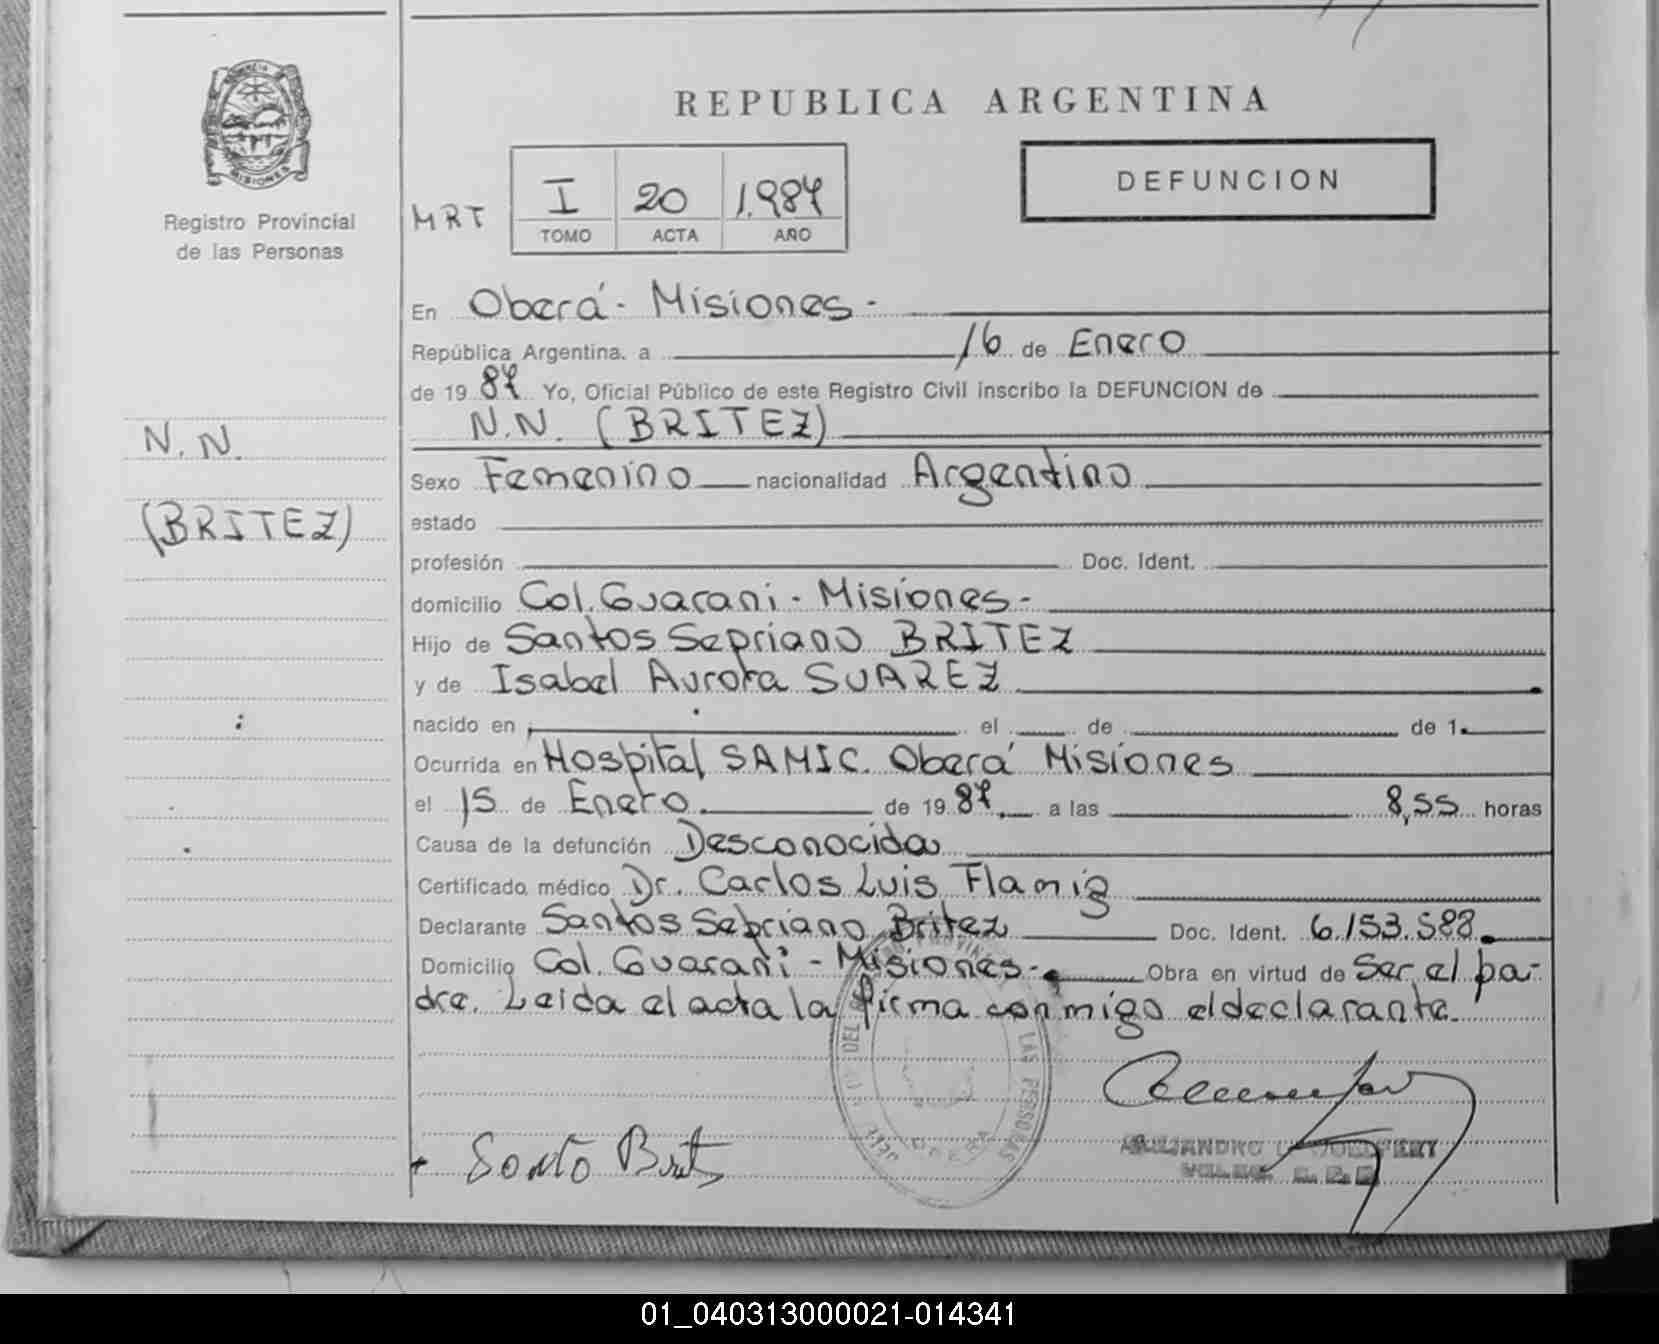 REPUBLICA ARGENTINA
MISIONES
Registro Provincial
de las Personas
MRT
I 20 1.984
TOMO ACTA AÑO
DEFUNCION
En Oberá - Misiones -
República Argentina, a 16 de Enero
de 19 84 Yo, Oficial Público de este Registro Civil inscribo la DEFUNCION de
N.N. (BRITEZ)
N.N.
(BRITEZ)
Sexo Femenino nacionalidad Argentino
estado
profesión Doc. Ident.
domicilio Col. Guarani - Misiones -
Hijo de Santos Sepriano BRITEZ
y de Isabel Aurora SUAREZ
nacido en el de de 1.
Ocurrida en Hospital SAMIC. Oberá Misiones
el 15 de Enero de 19 84 a las 8,55 horas
Causa de la defunción Desconocida
Certificado médico Dr. Carlos Luis
Declarante Santos Sebriano Britez Doc. Ident. 6.153.588
Domicilio Col. Guarani - Misiones - Obra en virtud de Ser el pa-
dre. Leida el acta la firma conmigo el declarante.
LAS PERSONAS
OBERA
ALEJANDRO
01_040313000021-014341